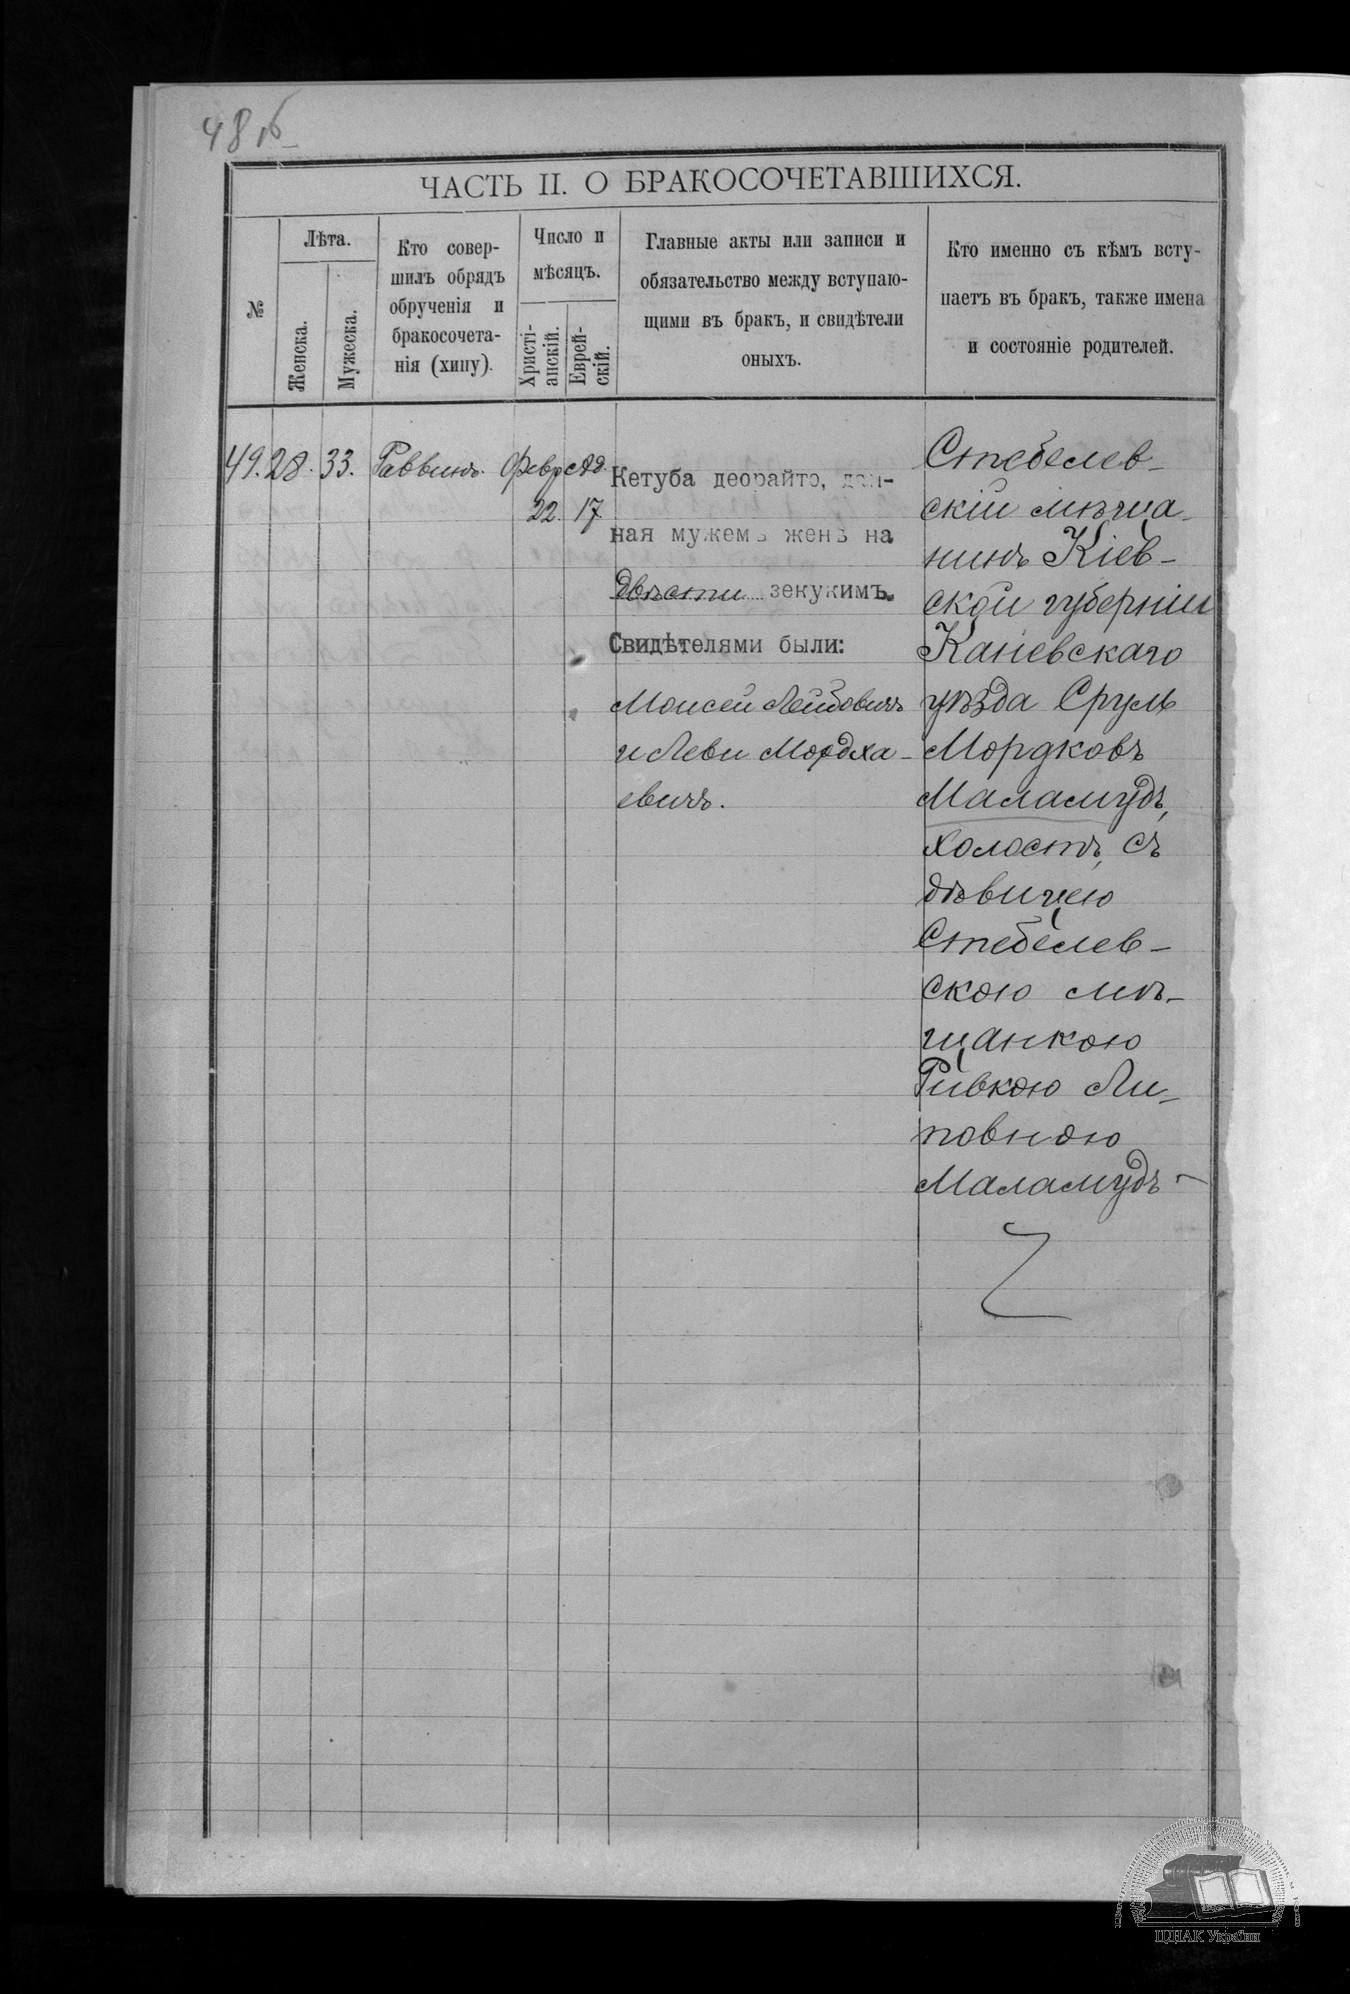 48 об
ЧАСТЬ II. О БРАКОСОЧЕТАВШИХСЯ.
№
Лѣта.
Женска.
Мужеска.
Кто совер-
шилъ обрядъ
обрученія и
бракосочета-
нія (хипу).
Число и
мѣсяцъ.
Христі-
анскій.
Еврей-
скій.
Главные акты или записи и
обязательство между вступаю-
щими въ бракъ, и свидѣтели
оныхъ.
Кто именно съ кѣмъ всту-
паетъ въ бракъ, также имена
и состояніе родителей.
49. 28. 33. Раввинъ. Февр Ад.
22. 17
Кетуба деорайто, дан-
ная мужемъ женѣ на
двѣсти зекукимъ.
Свидѣтелями были:
Моисей Лейбовичъ
и Леви Мордха-
евичъ.
Стебелев-
скій мѣща-
нинъ Кіев-
ской губерніи
Каневскаго
уѣзда Сруль
Мордковъ
Маламудъ,
холостъ, съ
дѣвицею
Стебелев-
скою мѣ-
щанкою
Ривкою Ли-
повною
Маламудъ
ЦДІАК України